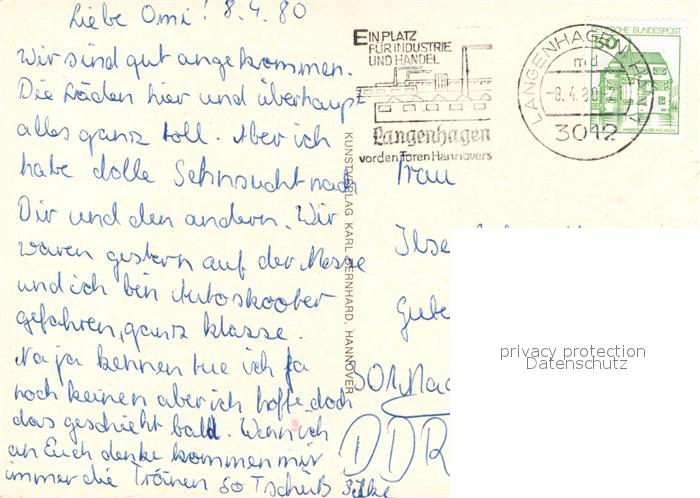 Liebe Omi! 8.4.80
Wir sind gut angekommen.
Die Läden hier und überhaupt
alles ganz toll. Aber ich
habe dolle Sehnsucht nach
Dir und den anderen. Wir
waren gestern auf der Messe
und ich bin Autoskooter
gefahren, ganz klasse.
Na ja kennen tue ich ja
noch keinen aber ich hoffe doch
das geschieht bald. Wenn ich
an Euch denke kommen mir
immer die Tränen so Tschüß Silke
EIN PLATZ
FÜR INDUSTRIE
UND HANDEL
Langenhagen
vor den Toren Hannovers
LANGENHAGEN, HAN
md
-8.4.80
3012
50
DEUTSCHE BUNDESPOST
KUNSTVERLAG KARL BERNHARD, HANNOVER
Frau
Ilse
Gube
DDR
privacy protection
Datenschutz